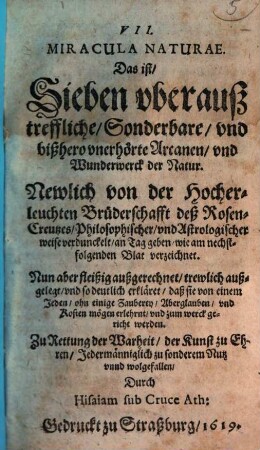 5
VII.
MIRACULA NATURAE.
Das ist/
Sieben vberauß
treffliche/Sonderbare/ vnd
bißhero vnerhörte Arcanen/ vnd
Wunderwerck der Natur.
Newlich von der Hocher-
leuchten Brüderschafft deß Rosen-
Creutzes/Philosophischer/vnd Astrologischer
weise verdunckelt/ an Tag geben/ wie am nechst-
folgenden Blat verzeichnet.
Nun aber fleißig außgerechnet/ trewlich auß-
gelegt/vnd so deutlich erkläret/ daß sie von einem
Jeden/ ohn einige Zauberey/ Aberglauben/ vnd
Kosten mögen erlehrnt/ vnd zum werck ge-
richt werden.
Zu Rettung der Warheit/ der Kunst zu Eh-
ren/ Jedermänniglich zu sonderem Nutz
vnnd wolgefallen/
Durch
Hisaiam sub Cruce Ath:
Gedruckt zu Straßburg/ 1619.